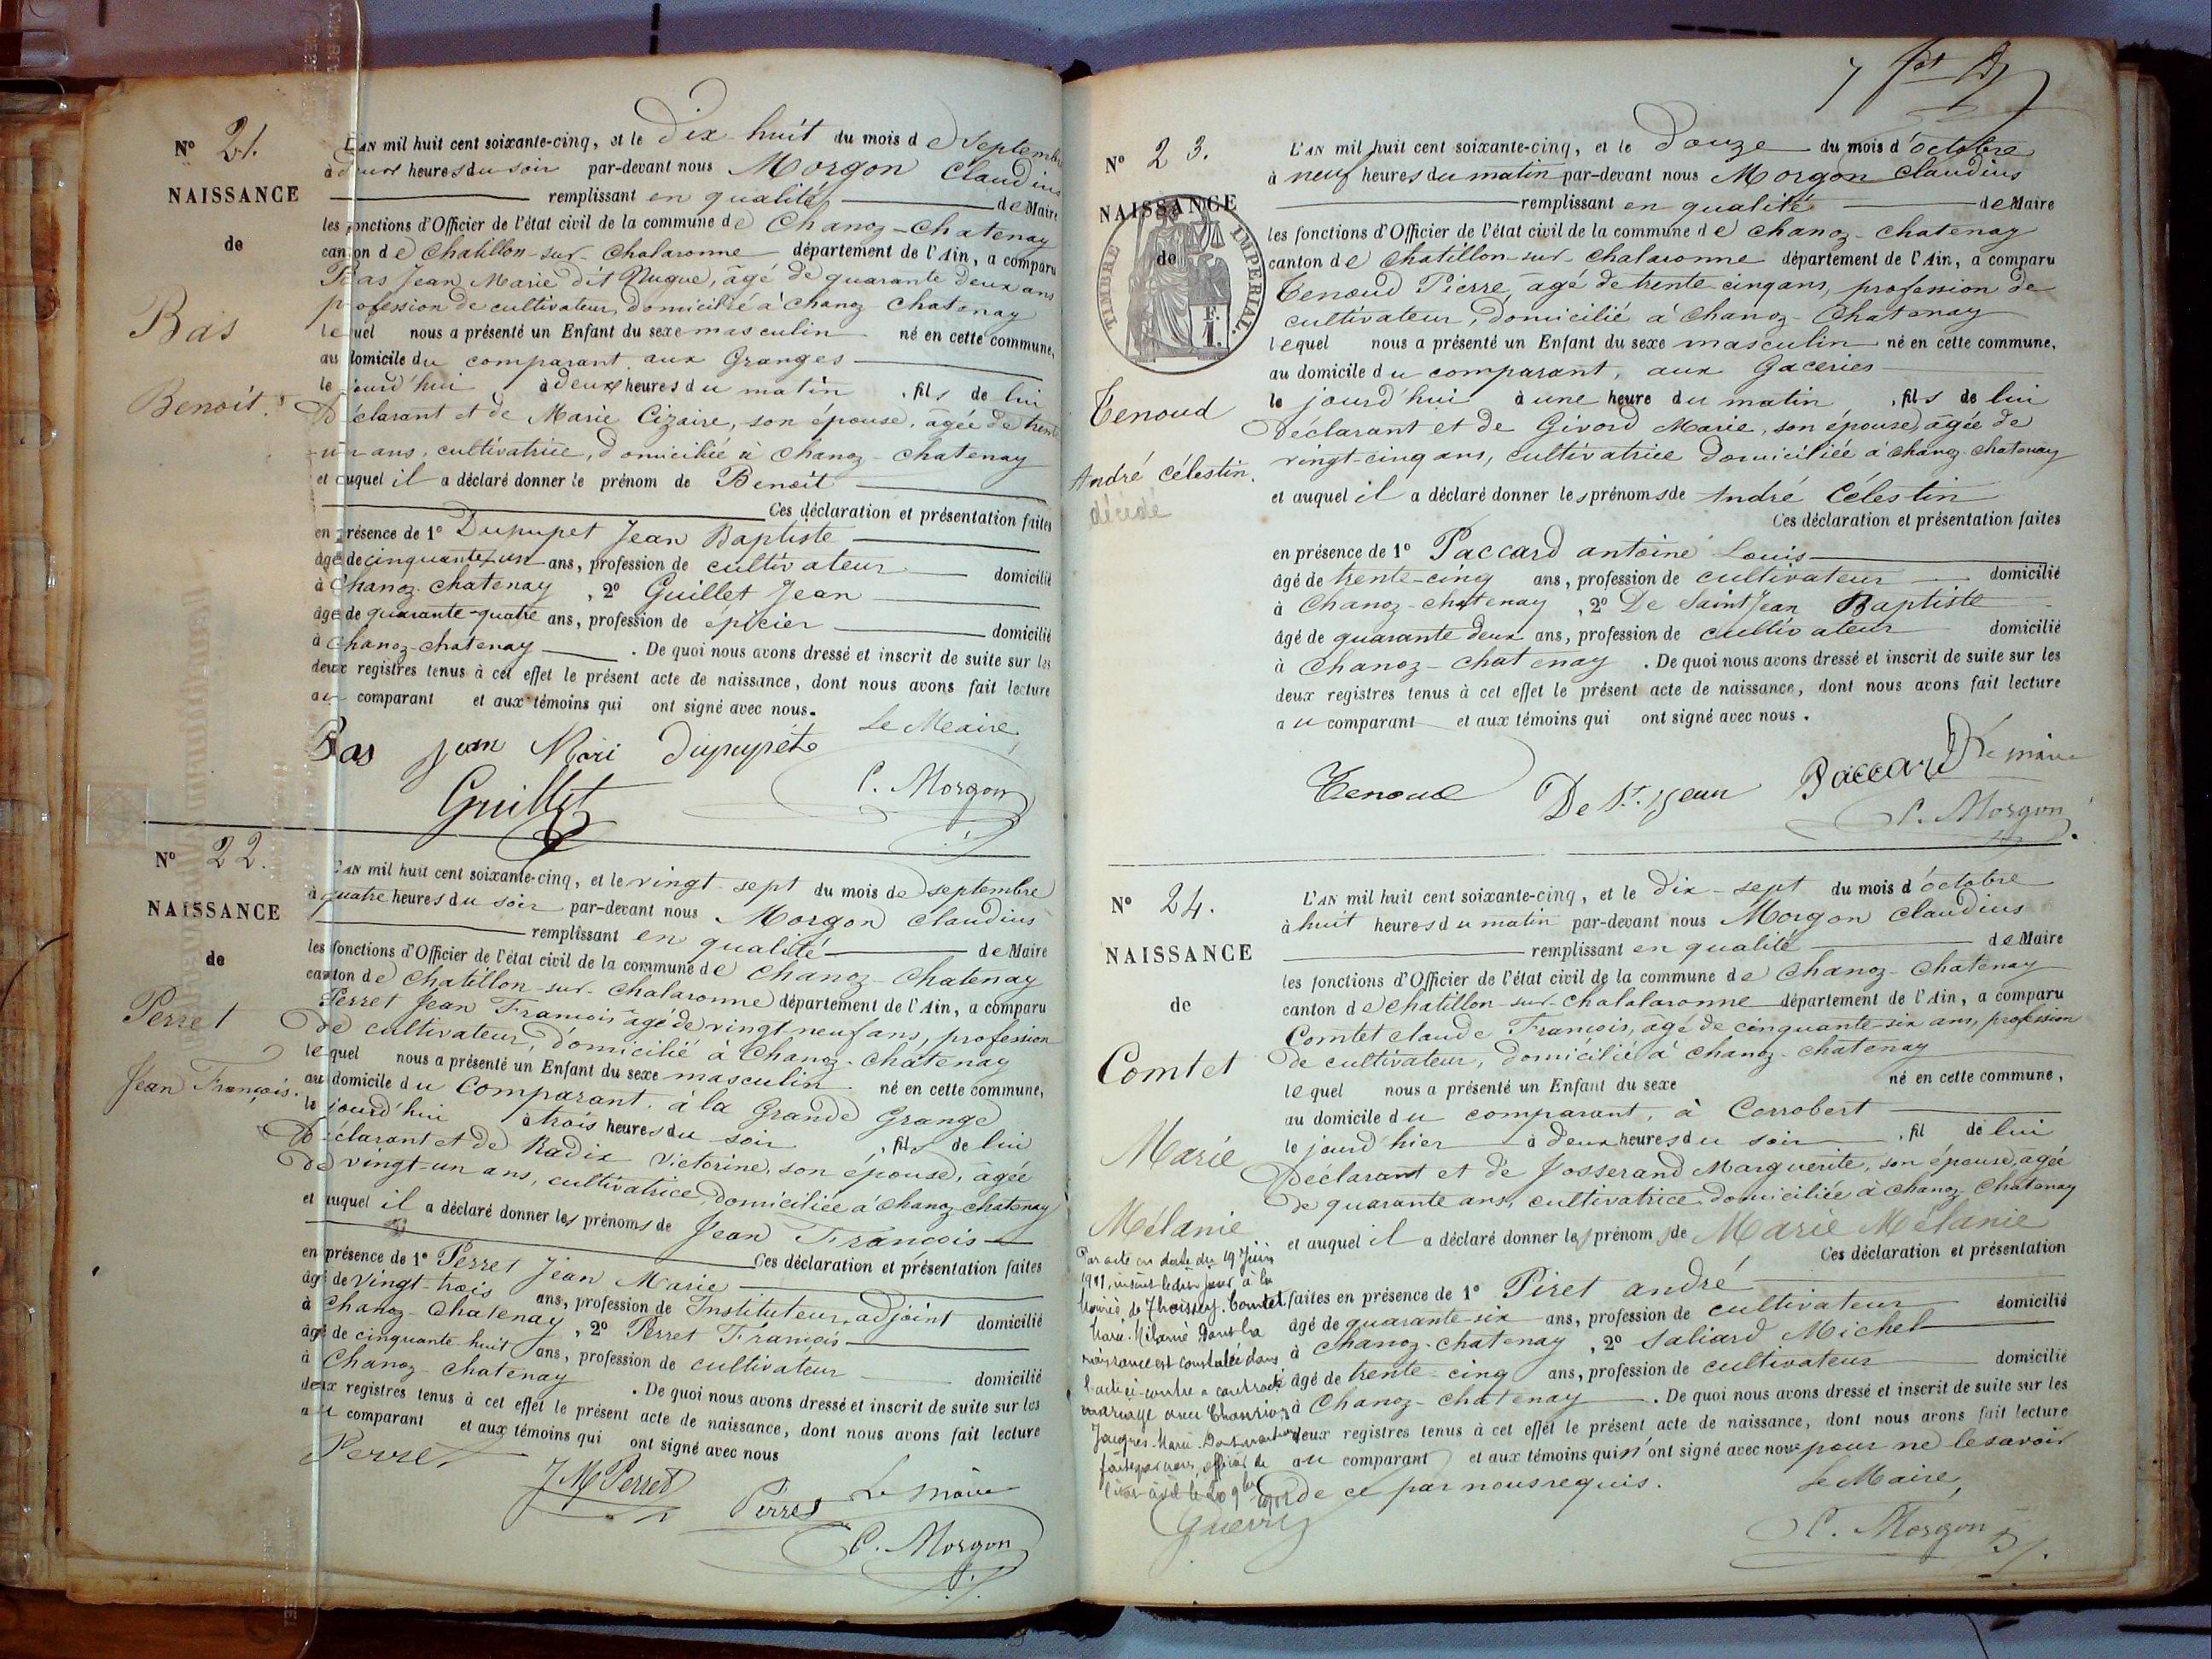 N° 21.
NAISSANCE
de
Bas
Benoit.
L'AN mil huit cent soixante-cinq, et le Dix-huit du mois de Septembre
à deux heures du soir par-devant nous Morgon Claudius
remplissant en qualité de Maire
les fonctions d'Officier de l'état civil de la commune de Chanoz-Chatenay
canton de Chatillon-sur-Chalaronne département de l'Ain, a comparu
Bas Jean Marie dit Nugue, âgé de quarante deux ans
profession de cultivateur, domicilié à Chanoz Chatenay
lequel nous a présenté un Enfant du sexe masculin né en cette commune,
au domicile du comparant aux Granges
le jourd'hui à deux heures du matin, fils de lui
Déclarant et de Marie Cizaire, son épouse, âgée de trente
un ans, cultivatrice, domiciliée à Chanoz-Chatenay
et auquel il a déclaré donner le prénom de Benoit
Ces déclaration et présentation faites
en présence de 1° Dupupet Jean Baptiste
âgé de cinquante-un ans, profession de cultivateur domicilié
à Chanoz-Chatenay, 2° Guillet Jean
âgé de quarante-quatre ans, profession de épicier domicilié
à Chanoz-Chatenay. De quoi nous avons dressé et inscrit de suite sur les
deux registres tenus à cet effet le présent acte de naissance, dont nous avons fait lecture
au comparant et aux témoins qui ont signé avec nous.
Le Maire,
Bas jean Mari Dupupet
Guillet C. Morgon
N° 22.
NAISSANCE
de
Perret
Jean François.
L'AN mil huit cent soixante-cinq, et le vingt-sept du mois de septembre
à quatre heures du soir par-devant nous Morgon Claudius
remplissant en qualité de Maire
les fonctions d'Officier de l'état civil de la commune de Chanoz-Chatenay
canton de Chatillon-sur-Chalaronne département de l'Ain, a comparu
Perret Jean François âgé de vingt neuf ans, profession
de cultivateur, domicilié à Chanoz-Chatenay
lequel nous a présenté un Enfant du sexe masculin né en cette commune,
au domicile du Comparant, à la Grande Grange
le jourd'hui à trois heures du soir, fils de lui
Déclarant et de Radix Victorine, son épouse, âgée
de vingt-un ans, cultivatrice, domiciliée à Chanoz Chatenay
et auquel il a déclaré donner les prénoms de Jean François
Ces déclaration et présentation faites
en présence de 1° Perret Jean Marie
âgé de vingt-trois ans, profession de Instituteur adjoint domicilié
à Chanoz-Chatenay, 2° Perret François
âgé de cinquante-huit ans, profession de cultivateur domicilié
à Chanoz-Chatenay. De quoi nous avons dressé et inscrit de suite sur les
deux registres tenus à cet effet le présent acte de naissance, dont nous avons fait lecture
au comparant et aux témoins qui ont signé avec nous
Perret
J M Perret Perret Le Maire
C. Morgon
N° 23.
NAISSANCE
de
TIMBRE IMPERIAL.
F. 1.
Tenoud
André Célestin.
décédé
L'AN mil huit cent soixante-cinq, et le Douze du mois d'octobre
à neuf heures du matin par-devant nous Morgon Claudius
remplissant en qualité de Maire
les fonctions d'Officier de l'état civil de la commune de Chanoz-Chatenay
canton de Chatillon-sur-Chalaronne département de l'Ain, a comparu
Tenoud Pierre, âgé de trente-cinq ans, profession de
cultivateur, domicilié à Chanoz-Chatenay
lequel nous a présenté un Enfant du sexe masculin né en cette commune,
au domicile du comparant, aux Gaceries
le jourd'hui à une heure du matin, fils de lui
Déclarant et de Givord Marie, son épouse, âgée de
vingt-cinq ans, cultivatrice domiciliée à Chanoz-Chatenay
et auquel il a déclaré donner les prénoms de André Célestin
Ces déclaration et présentation faites
en présence de 1° Paccard antoine Louis
âgé de trente-cinq ans, profession de cultivateur domicilié
à Chanoz-Chatenay, 2° De Saint Jean Baptiste
âgé de quarante deux ans, profession de cultivateur domicilié
à Chanoz-Chatenay. De quoi nous avons dressé et inscrit de suite sur les
deux registres tenus à cet effet le présent acte de naissance, dont nous avons fait lecture
au comparant et aux témoins qui ont signé avec nous.
Tenoud De St. Jean Paccard Le maire
C. Morgon
N° 24.
NAISSANCE
de
Comtet
Marie
Mélanie
Par acte en date du 19 Juin
1911, inscrit le dit jour à la
Mairie de Thoissey, Comtet
Marie Mélanie dont la
naissance est constatée dans
l'acte ci-contre a contracté
mariage avec
Jacques Marie
Guerry
L'AN mil huit cent soixante-cinq, et le Dix-sept du mois d'octobre
à huit heures du matin par-devant nous Morgon Claudius
remplissant en qualité de Maire
les fonctions d'Officier de l'état civil de la commune de Chanoz-Chatenay
canton de Chatillon-sur-Chalalaronne département de l'Ain, a comparu
Comtet claude François, âgé de cinquante-six ans, profession
de cultivateur, domicilié à Chanoz-Chatenay
lequel nous a présenté un Enfant du sexe né en cette commune,
au domicile du comparant, à Corrobert
le jourd'hier à deux heures du soir, fil de lui
Déclarant et de Josserand Marguerite, son épouse, agée
de quarante ans, cultivatrice domiciliée à Chanoz Chatenay
et auquel il a déclaré donner les prénoms de Marie Mélanie
Ces déclaration et présentation
faites en présence de 1° Piret andré
âgé de quarante-six ans, profession de cultivateur domicilié
à Chanoz-Chatenay, 2° Saliard Michel
âgé de trente-cinq ans, profession de cultivateur domicilié
à Chanoz-Chatenay. De quoi nous avons dressé et inscrit de suite sur les
deux registres tenus à cet effet le présent acte de naissance, dont nous avons fait lecture
au comparant et aux témoins qui n'ont signé avec nous pour ne le savoir
de ce par nous requis. Le Maire,
C. Morgon